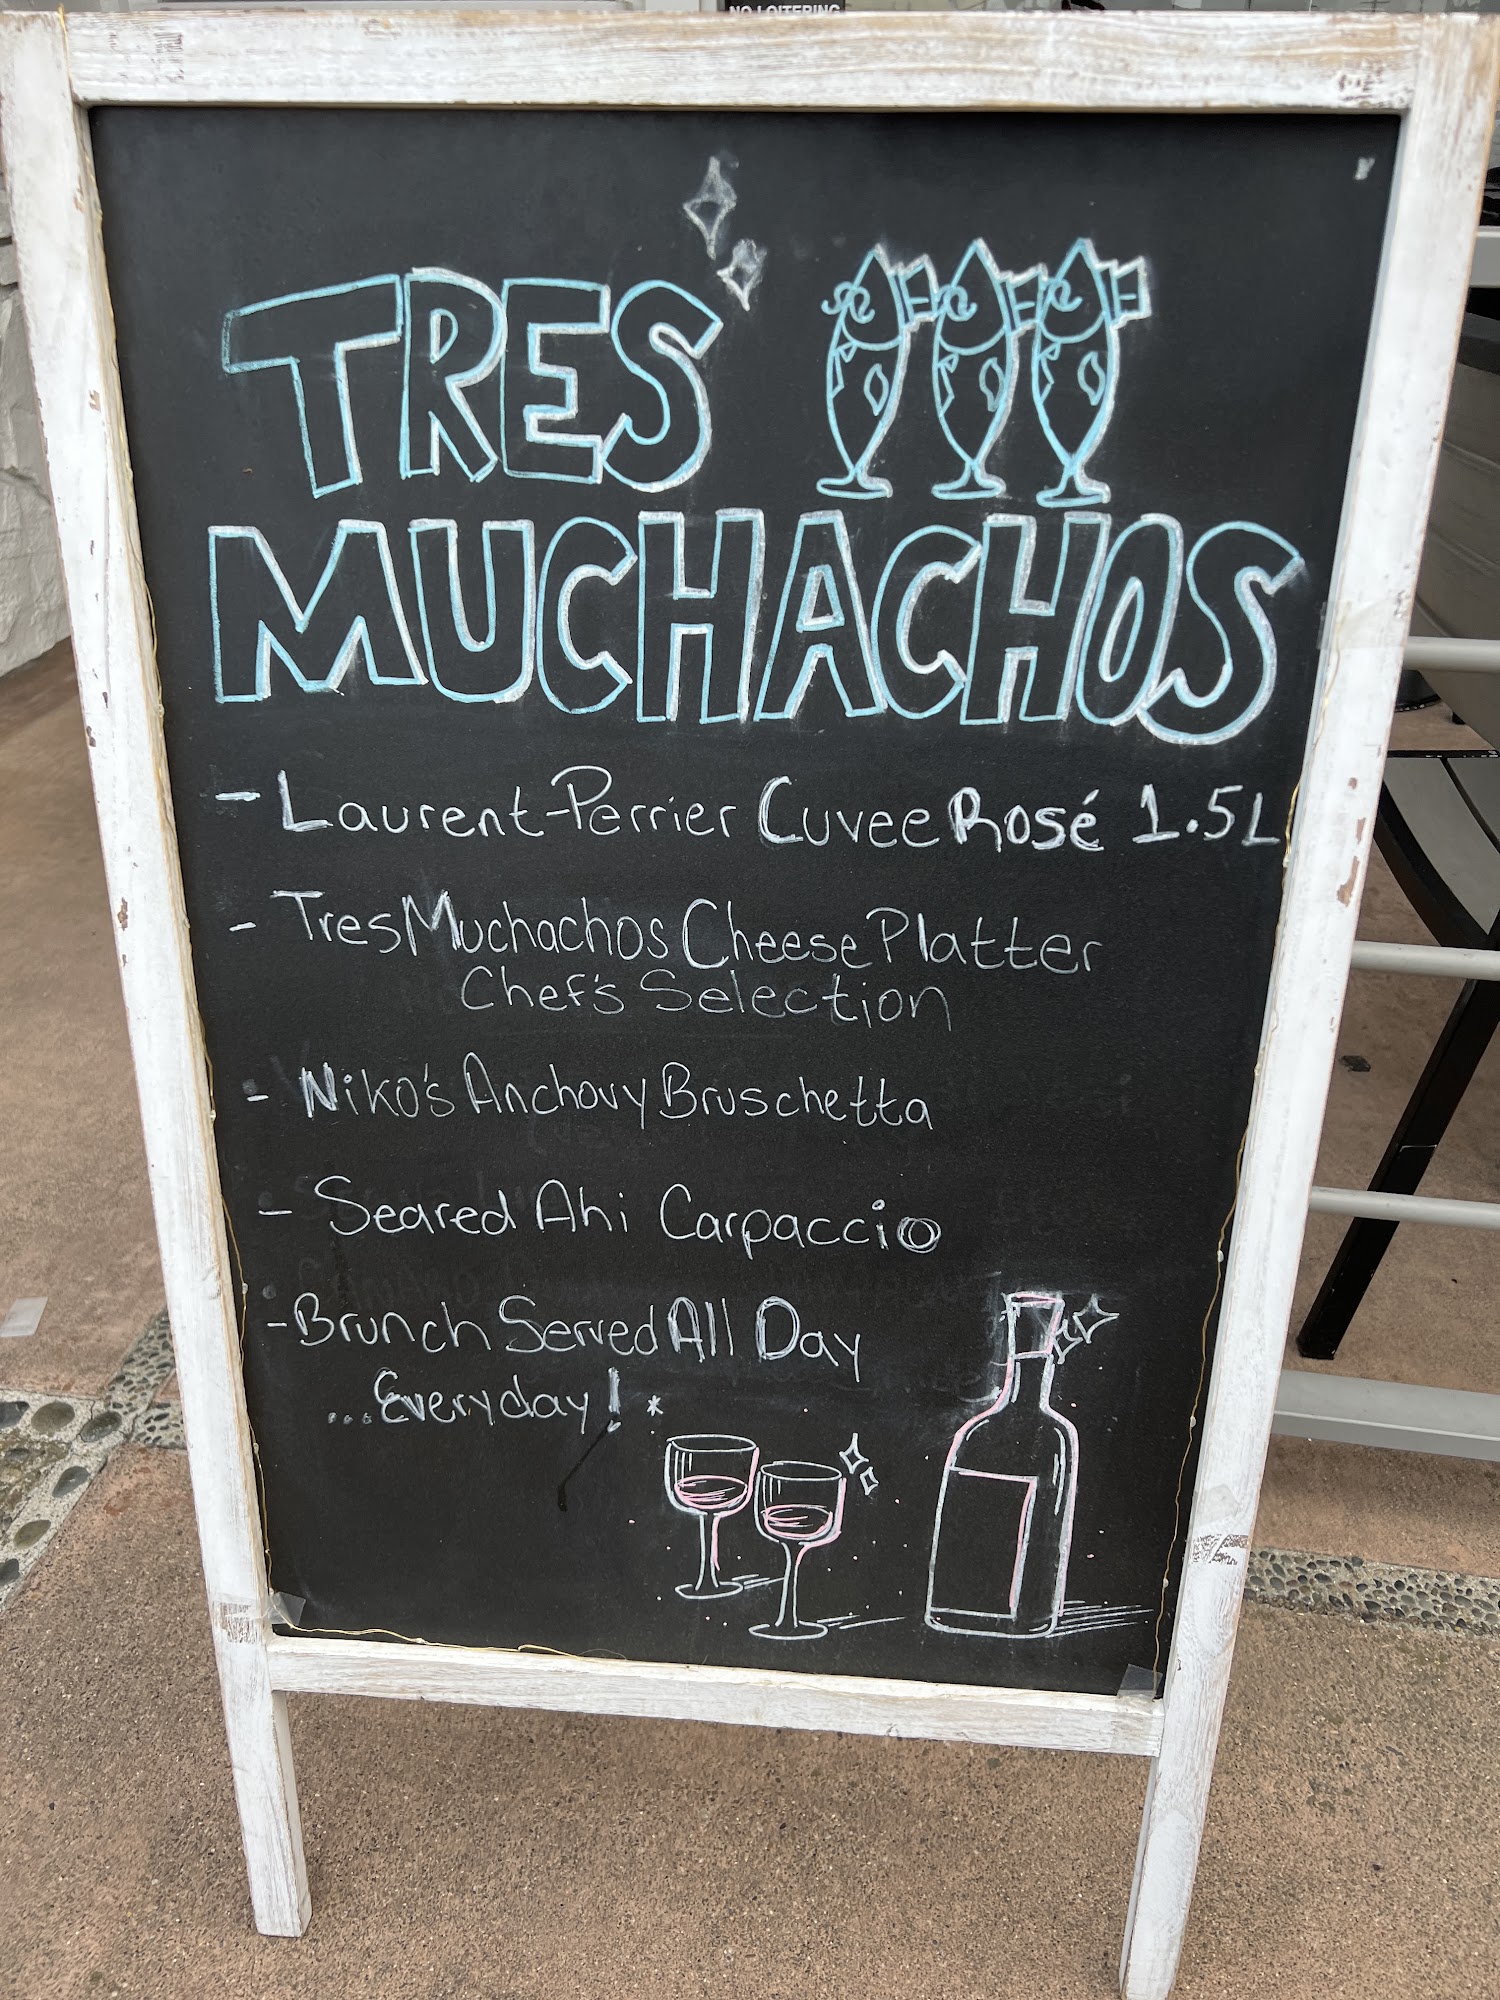 NO LOITERING
TRES
MUCHACHOS
- Laurent-Perrier Cuvee Rosé 1.5L
- Tres Muchachos Cheese Platter
Chef's Selection
- Niko's Anchovy Bruschetta
- Seared Ahi Carpaccio
- Brunch Served All Day
...Everyday! *